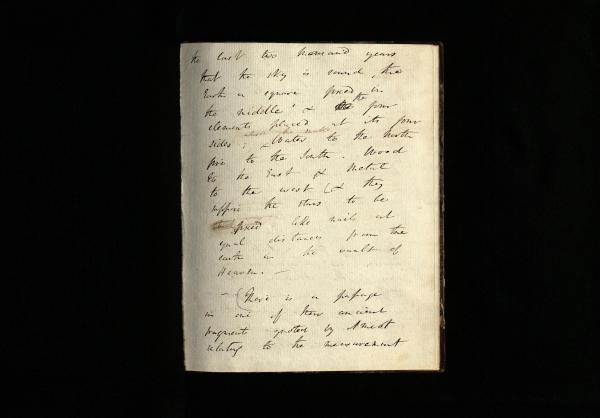 the last two thousand years
that the sky is round, the
Earth a square fixed in
the middle & the four
elements placed at its four
sides: Water to the North
fire to the South. Wood
to the East & Metal
to the west (& they
suppose the stars to be
fixed like nails at
equal distances from the
earth in the vault of
Heaven. —
— (There is a passage
in one of those ancient
fragments quoted by Amiot
relating to the measurement